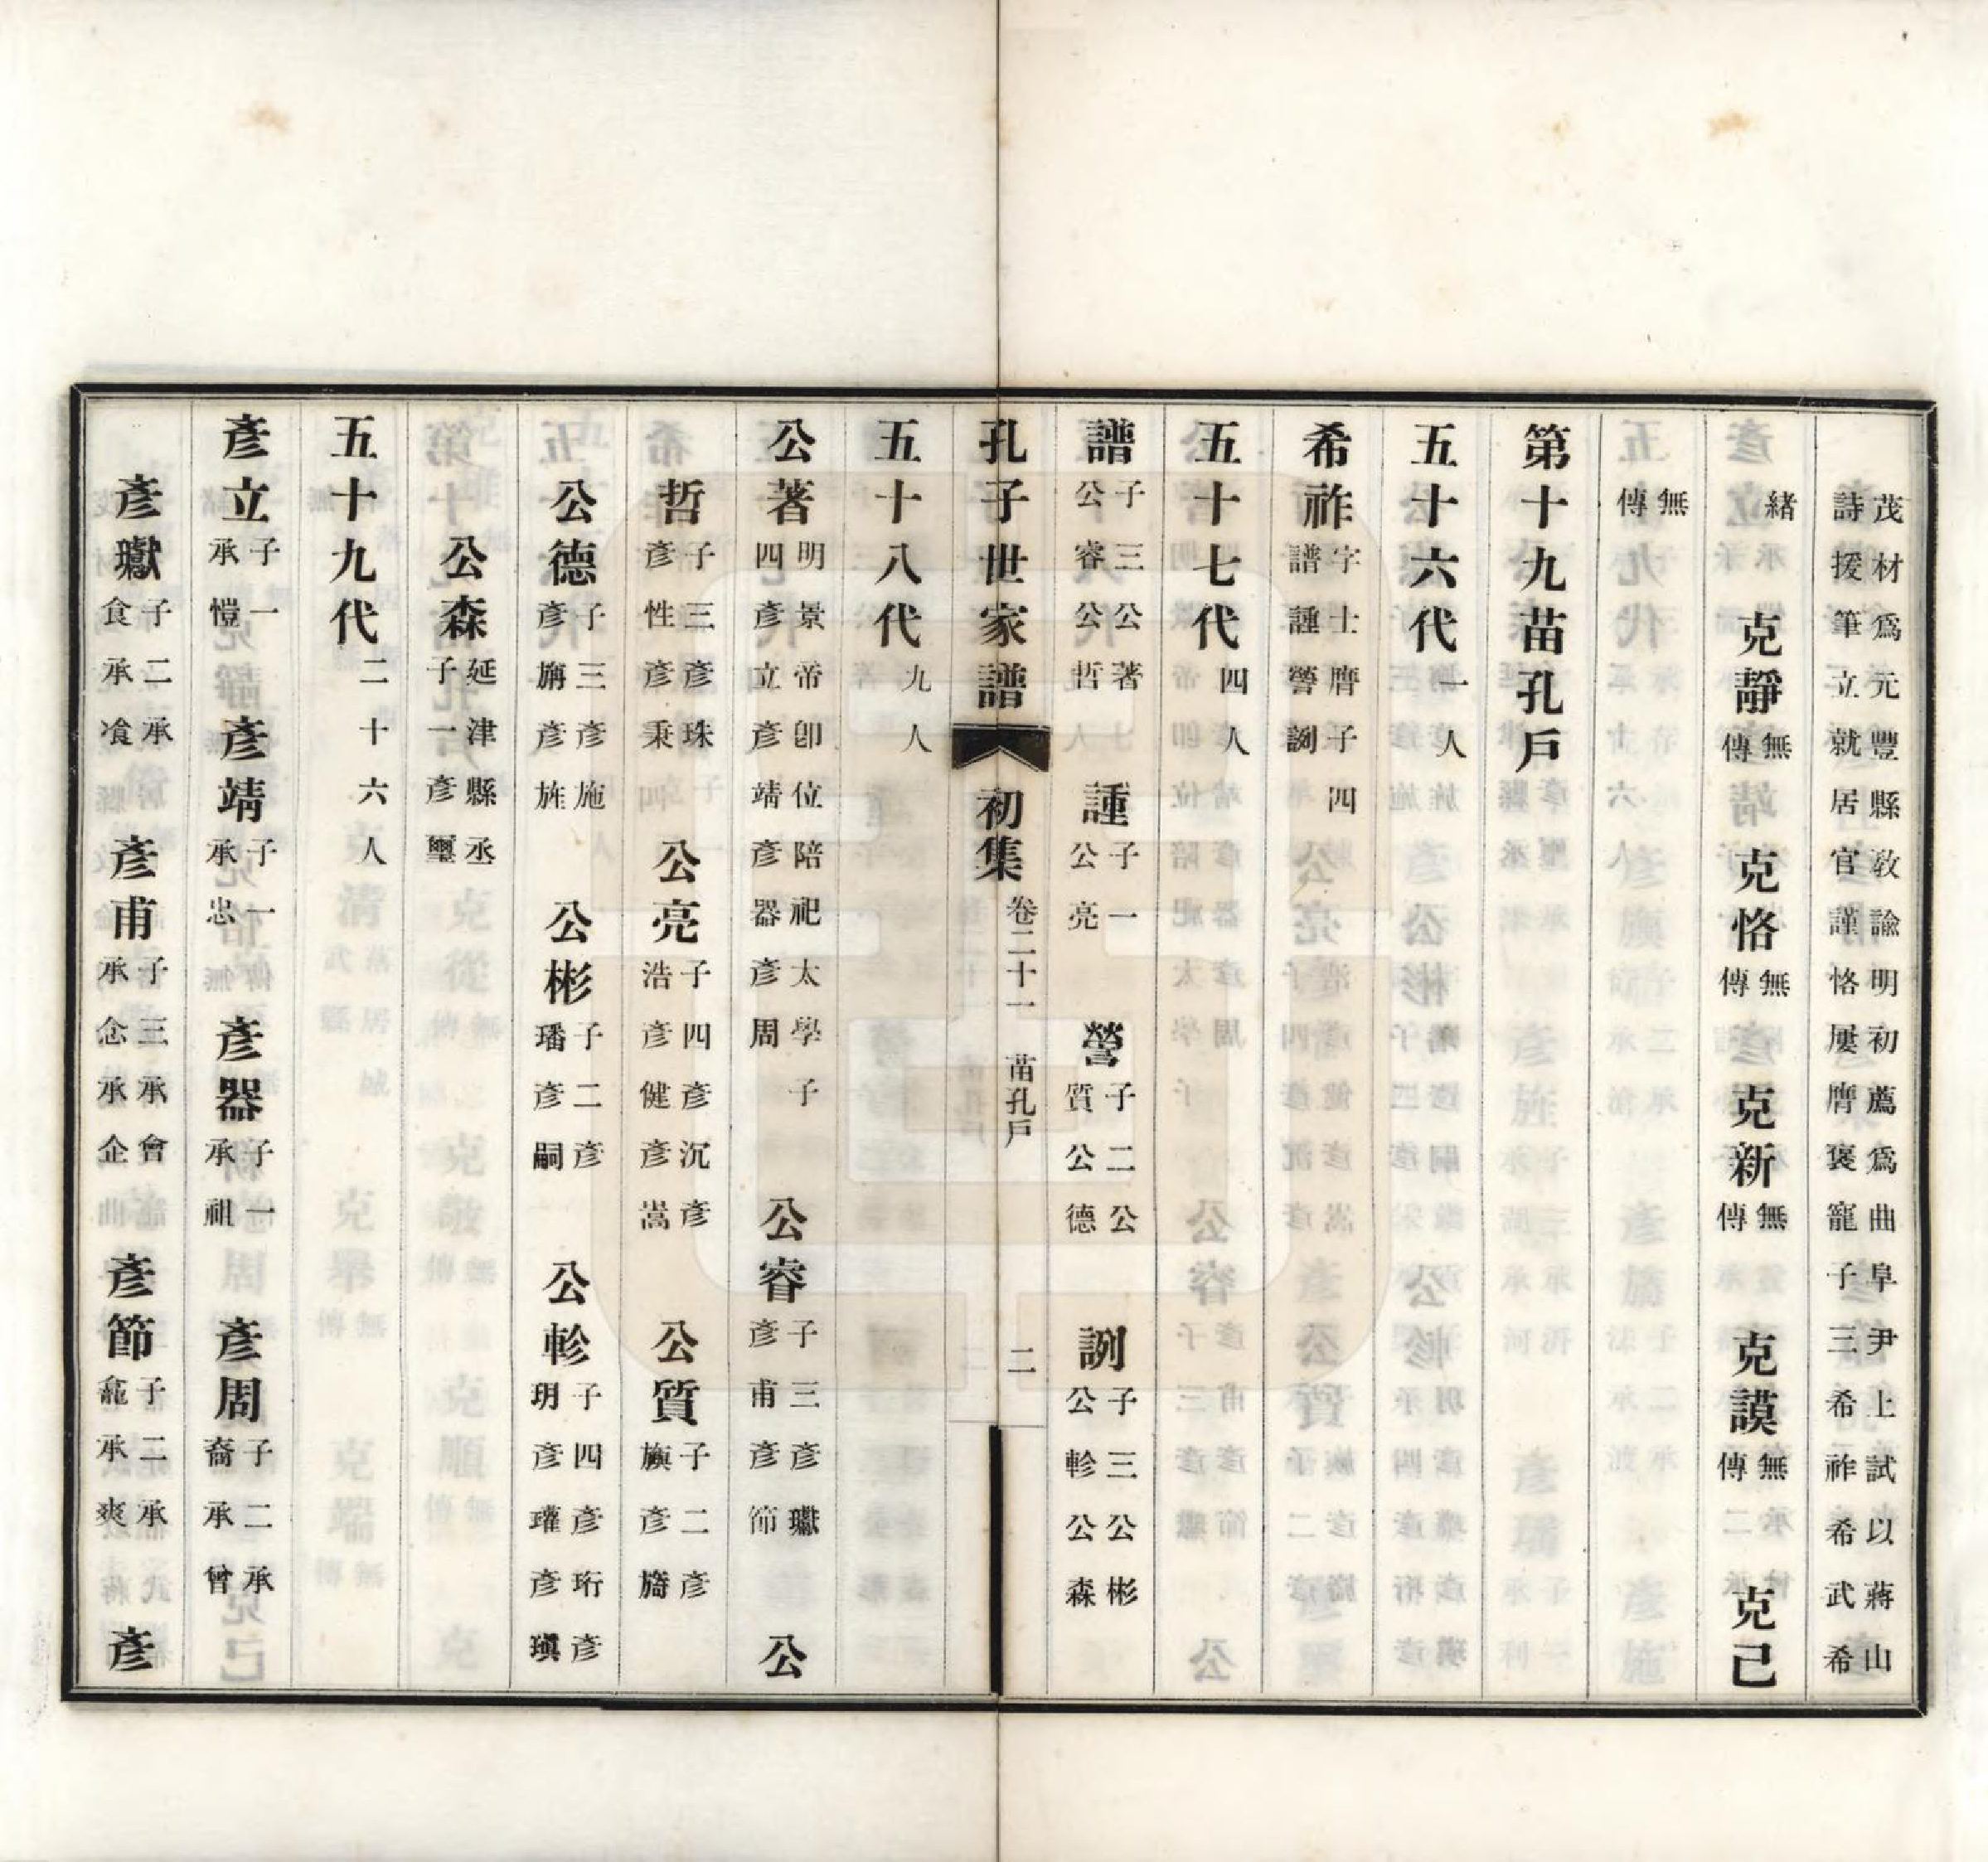 茂材爲元豐縣敎諭明初薦爲曲阜尹上試以蔣山
詩援筆立就居官謹恪屢膺褒寵子三希祚希武希
緒　克靜無傳　克恪無傳　克新無傳　克謨無傳　克己
無傳
第十九苗孔戶
五十六代一人
希祚字士膺子四譜諥謍謝
五十七代四人
譜子三公著公睿公哲　諥子一公亮　謍子二公質公德　謝子三公彬公軫公森
孔子世家譜　初集　卷二十一　苗孔戶　二
五十八代九人
公著明景帝卽位陪祀太學子四彥立彥靖彥器彥周　公睿子三彥瓛彥甫彥節　公
哲子三彥珠彥性彥秉　公亮子四彥沉彥浩彥健彥嵩　公質子二彥旟彥旖
公德子三彥施彥旃彥旌　公彬子二彥璠彥嗣　公軫子四彥珩彥玥彥瓘彥瑱
公森延津縣丞子一彥璽
五十九代二十六人
彥立子一承愷　彥靖子一承忠　彥器子一承祖　彥周子二承裔承曾
彥瓛子二承食承飡　彥甫子三承會承念承企　彥節子二承龕承爽　彥